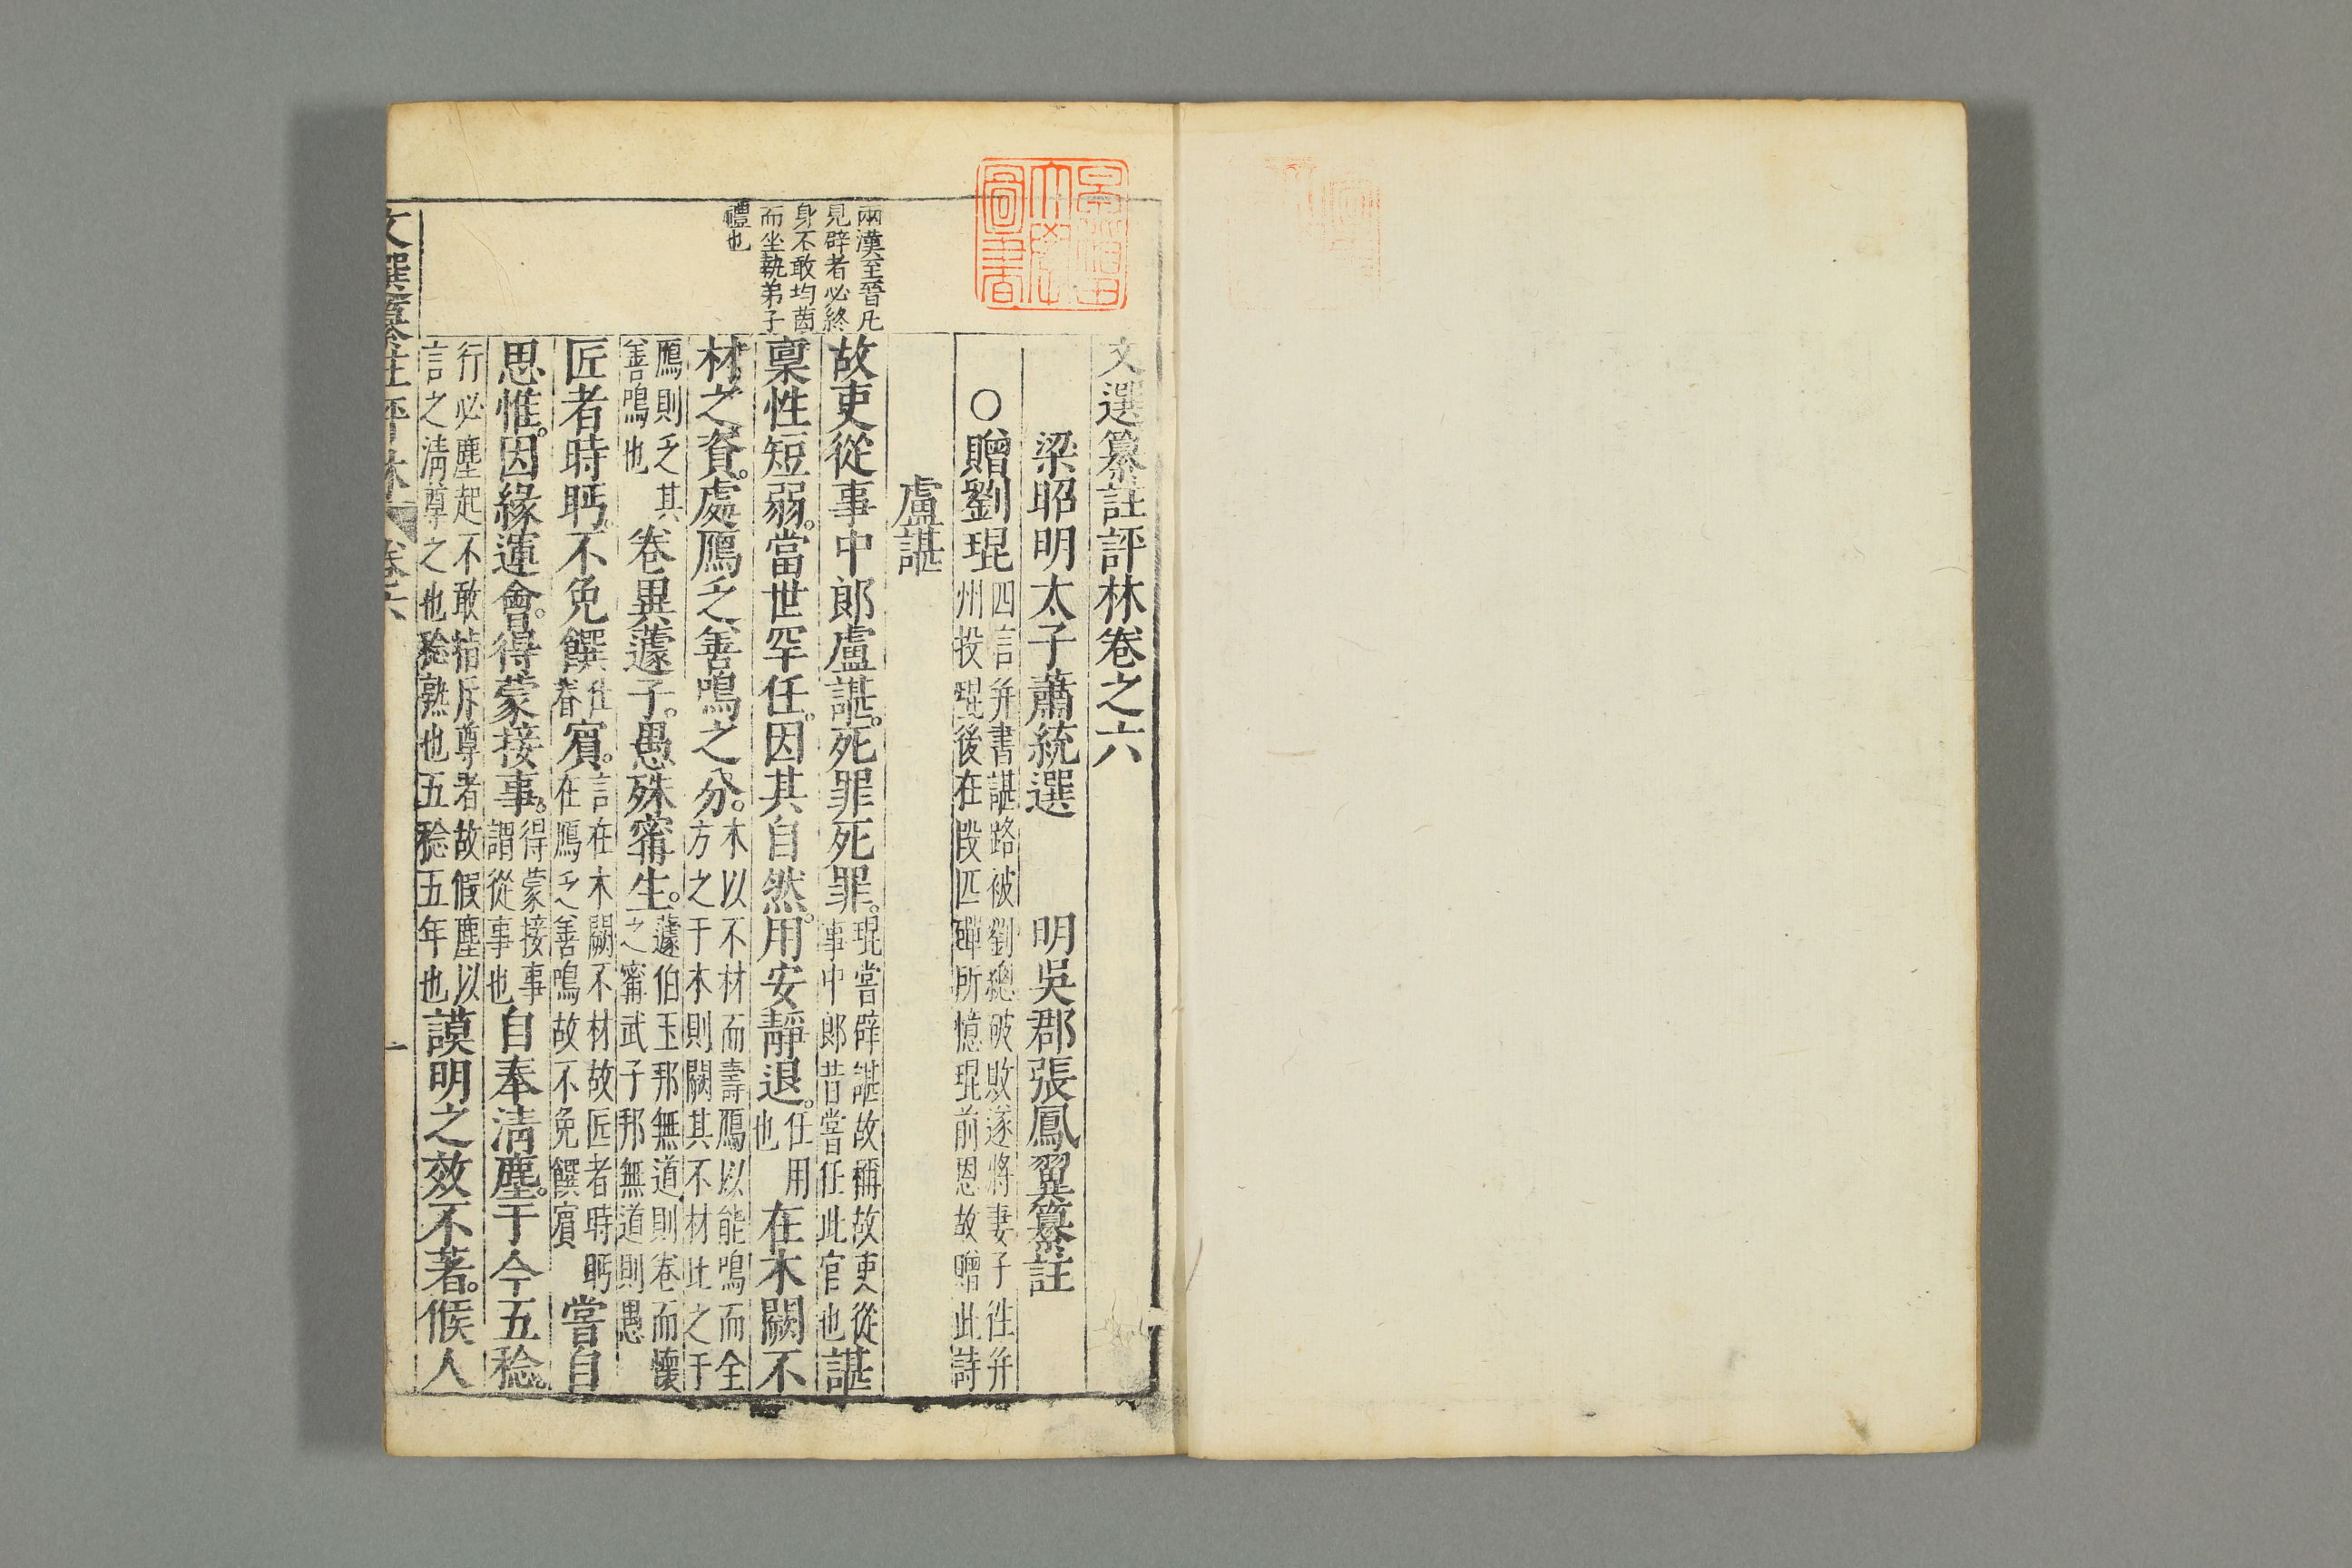 文選纂註評林卷之六
梁昭明太子蕭統選　明吳郡張鳳翼纂註
○贈劉琨四言并書諶路被劉總破敗遂將妻子徃并
州投琨後在段匹磾所憶琨前恩故贈此詩
盧諶
故吏從事中郎盧諶。死罪死罪。琨嘗辟諶故稱故吏從
事中郎昔嘗任此官也諶
稟性短弱。當世罕任。因其自然。用安靜退。任用
也在木闕不
材之資。處鴈乏善鳴之分。木以不材而壽鴈以能鳴而全
方之于木則闕其不材比之于
鴈則乏其
善鳴也卷異蘧子。愚殊甯生。蘧伯玉邦無道則卷而懷
之甯武子邦無道則愚
匠者時眄。不免饌仕
眷賔。言在木闕不材故匠者時眄
在鴈乏善鳴故不免饌賔嘗自
思惟。因緣運會。得蒙接事。得蒙接事
謂從事也自奉清塵。于今五稔。
行必塵起不敢指斥尊者故假塵以
言之清尊之也稔熟也五稔五年也謨明之效不著。候人
兩漢至晉凡
見辟者必終
身不敢均茵
而坐執弟子
禮也
文選纂註評林　卷六　一